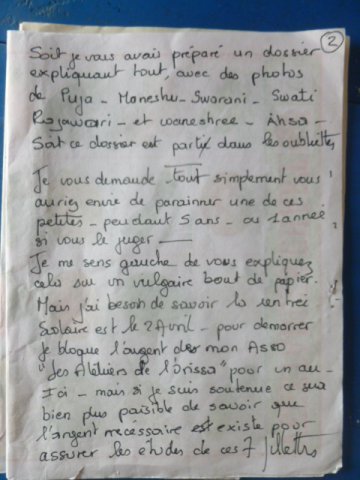 2
Soit je vous avais préparé un dossier
expliquant tout, avec des photos
de Puja - Moneshu - Swarani - Swati
Rojawari - et waneshree - Ansa -
Soit ce dossier est partie dans les oubliettes
Je vous demande tout simplement vous
auriez envie de parainner une de ces
petites - pendant 5 ans - ou 1 année
si vous le juger -
Je me sens gauche de vous expliquez
cela sur un vulgaire bout de papier.
Mais j'ai besoin de savoir la rentrée
Scolaire est le 2 Avril - pour démarrer
je bloque l'argent de mon Asso
"Les Atéliers de l'Orissa" pour un au-
- mais si je suis soutenue ce sera
bien plus paisible de savoir que
l'argent nécessaire est existe pour
assurer les études de ces 7 fillettes